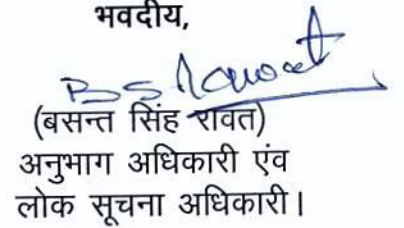 भवदीय,
BSRawat
(बसन्त सिंह रावत)
अनुभाग अधिकारी एंव
लोक सूचना अधिकारी।